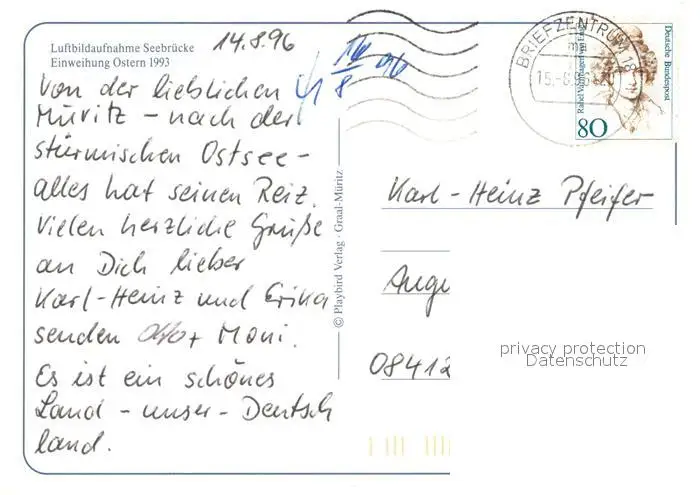 Luftbildaufnahme Seebrücke
Einweihung Ostern 1993
14.8.96
Von der lieblichen
Müritz – nach der
stürmischen Ostsee –
alles hat seinen Reiz.
Vielen herzliche Grüße
an Dich lieber
Karl-Heinz und Erika
senden Otto + Moni.
Es ist ein schönes
Land – unser – Deutsch
land.
16
8
96
© Playbird Verlag · Graal-Müritz
BRIEFZENTRUM 18
15.-8.96
Rahel Varnhagen von Ense
Deutsche Bundespost
80
Karl-Heinz Pfeifer
Auge
08412
privacy protection
Datenschutz